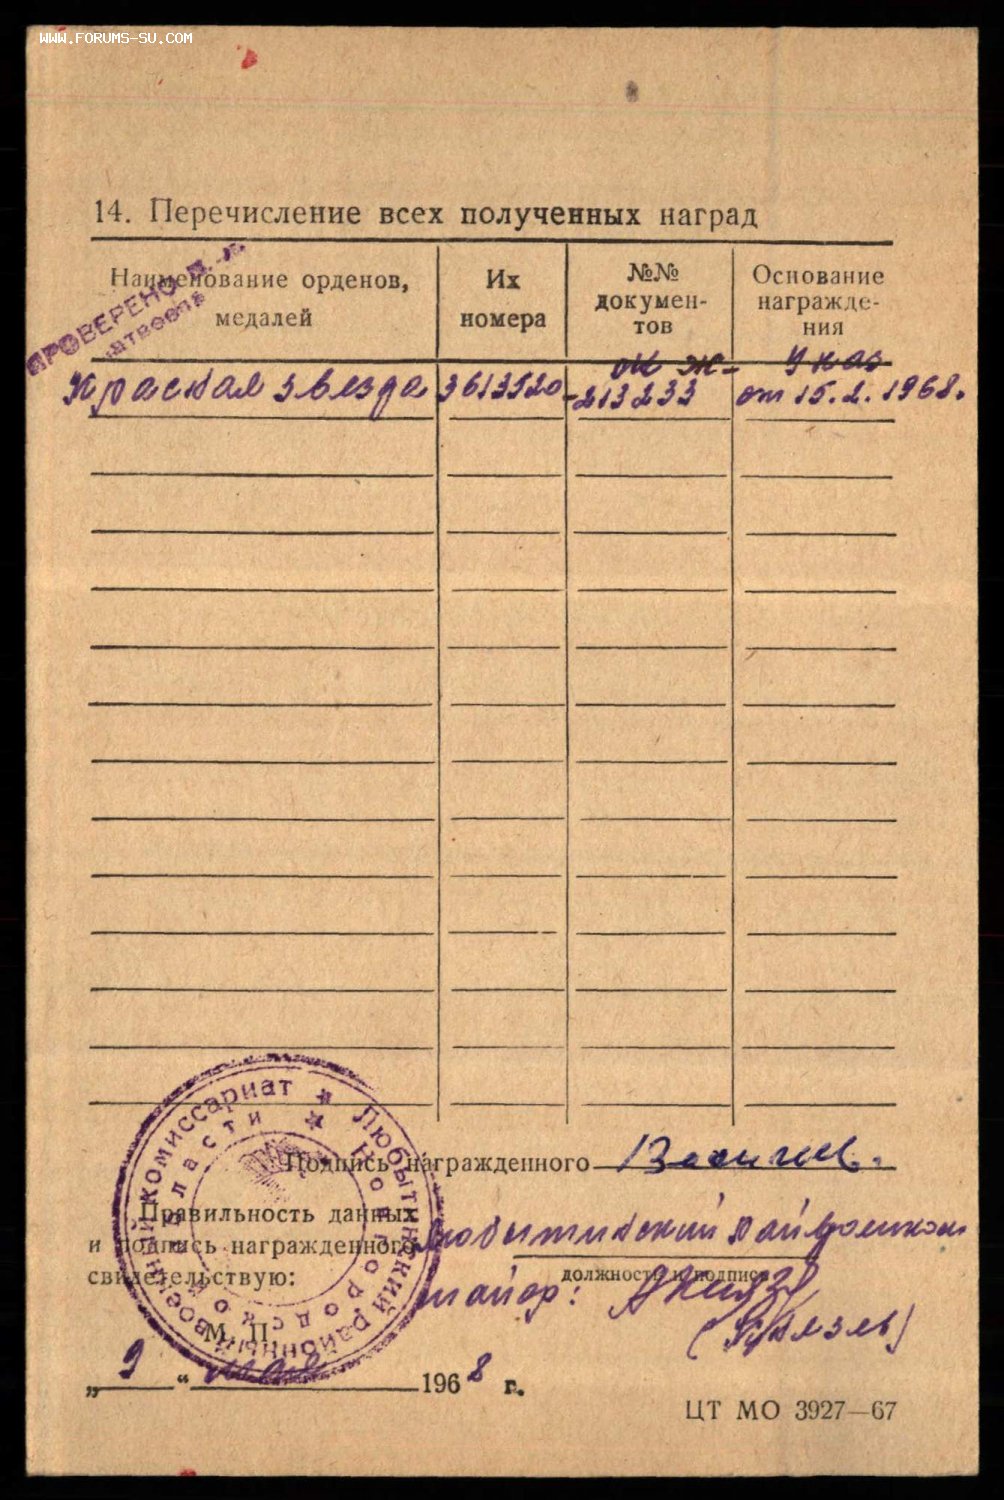 WWW.FORUMS-SU.COM
14. Перечисление всех полученных наград
Наименование орденов, медалей
Их номера
№№ докумен-тов
Основание награжде-ния
ПРОВЕРЕНО
Красная звезда 3613520 Ж-213233 Указ от 15.2.1968.
Подпись награжденного
Правильность данных
и подпись награжденного Любытинский Райвоенком
свидетельствую:
должность и подпись
майор: (Князь)
М. П.
„ 9 “ мая 1968 г.
Любытинский районный военный комиссариат
Новгородской области
ЦТ МО 3927—67